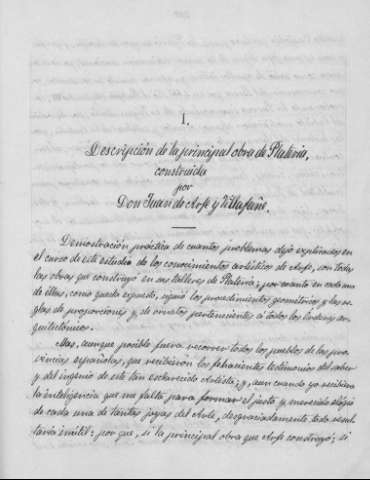 I.
Descripción de la principal obra de Platería,
construida
por
Don Juan de Arfe y Villafañe.
Demostración práctica de cuantos problemas dejó explicados en
el curso de este estudio de los conocimientos artísticos de Arfe, son todas
las obras que construyó en sus talleres de Platería; por cuanto en cada una
de ellas, como queda expuesto, siguió los procedimientos geométricos y las re-
glas de proporciones y de ornatos pertenecientes á todos los órdenes ar-
quitectónicos.
Mas, aunque posible fuera recorrer todos los pueblos de las pro-
vincias españolas, que recibieron los fehacientes testimonios del saber
y del ingenio de este tan esclarecido Artista; y, aun cuando yo recibiera
la inteligencia que me falta para formar el justo y merecido elogio
de cada una de tantas joyas del Arte, desgraciadamente todo resul-
taría inútil: por que, si la principal obra que Arfe construyó; si